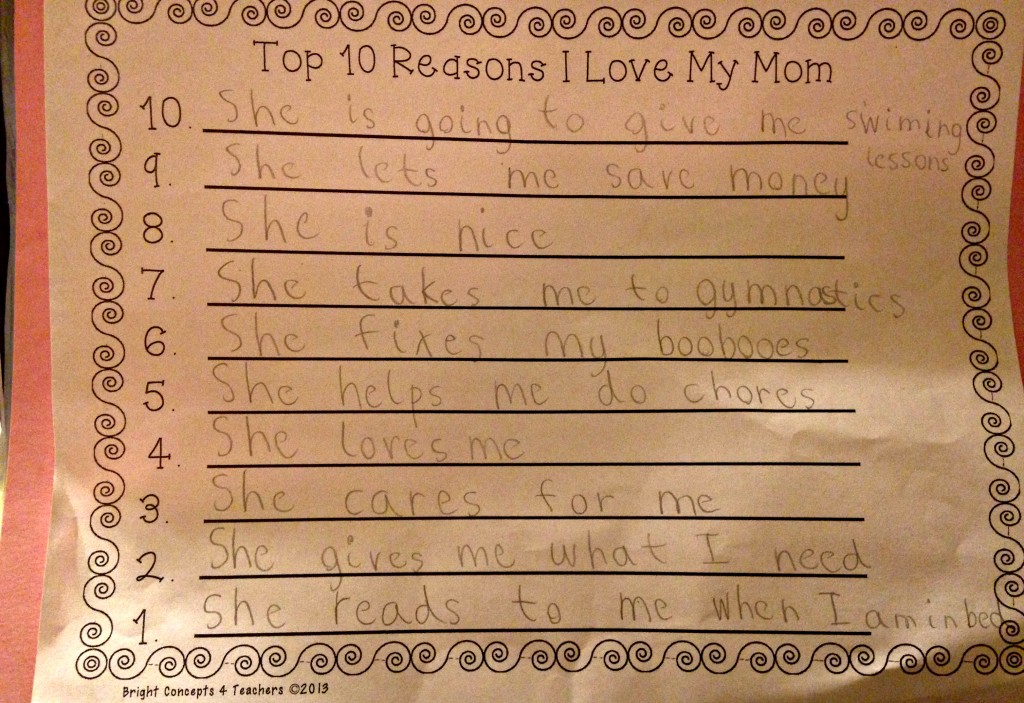 Top 10 Reasons I Love My Mom
10. She is going to give me swiming
lessons
9. She lets me save money
8. She is nice
7. She takes me to gymnastics
6. She fixes my boobooes
5. She helps me do chores
4. She loves me
3. She cares for me
2. She gives me what I need
1. She reads to me when I am in bed
Bright Concepts 4 Teachers ©2013